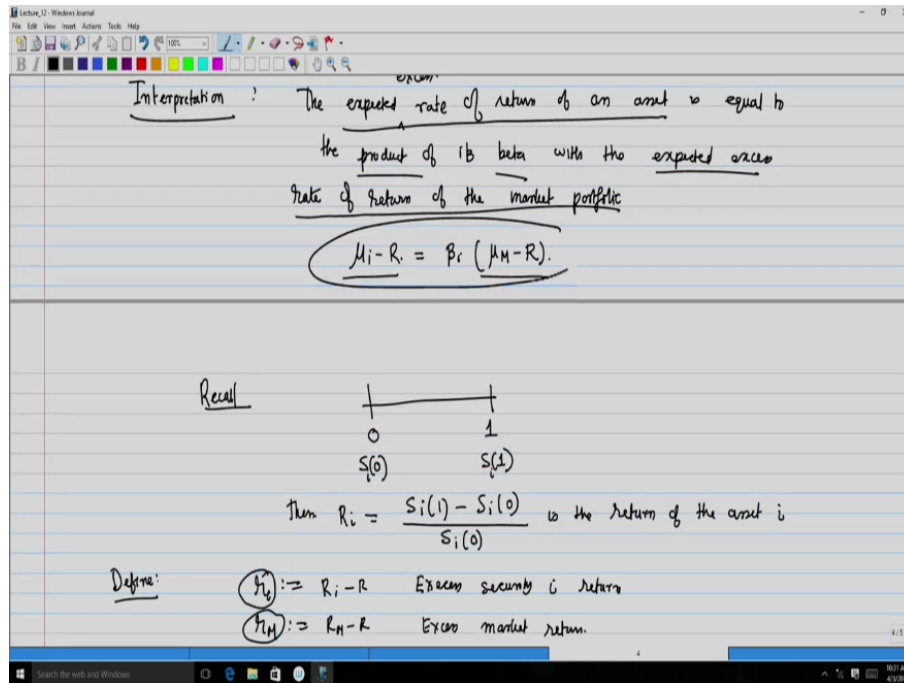 Lecture_12 - Windows Journal
File Edit View Insert Actions Tools Help
100%
B I
excess
Interpretation : The expected rate of return of an asset is equal to
the product of its beta with the expected excess
rate of return of the market portfolio
μi - R = βi (μM - R).
Recall
0 1
Si(0) Si(1)
Then Ri = Si(1) - Si(0) / Si(0) is the return of the asset i
Define: ri := Ri - R Excess security i return
rM := RM - R Excess market return.
4/5
4
Search the web and Windows
10:31 A